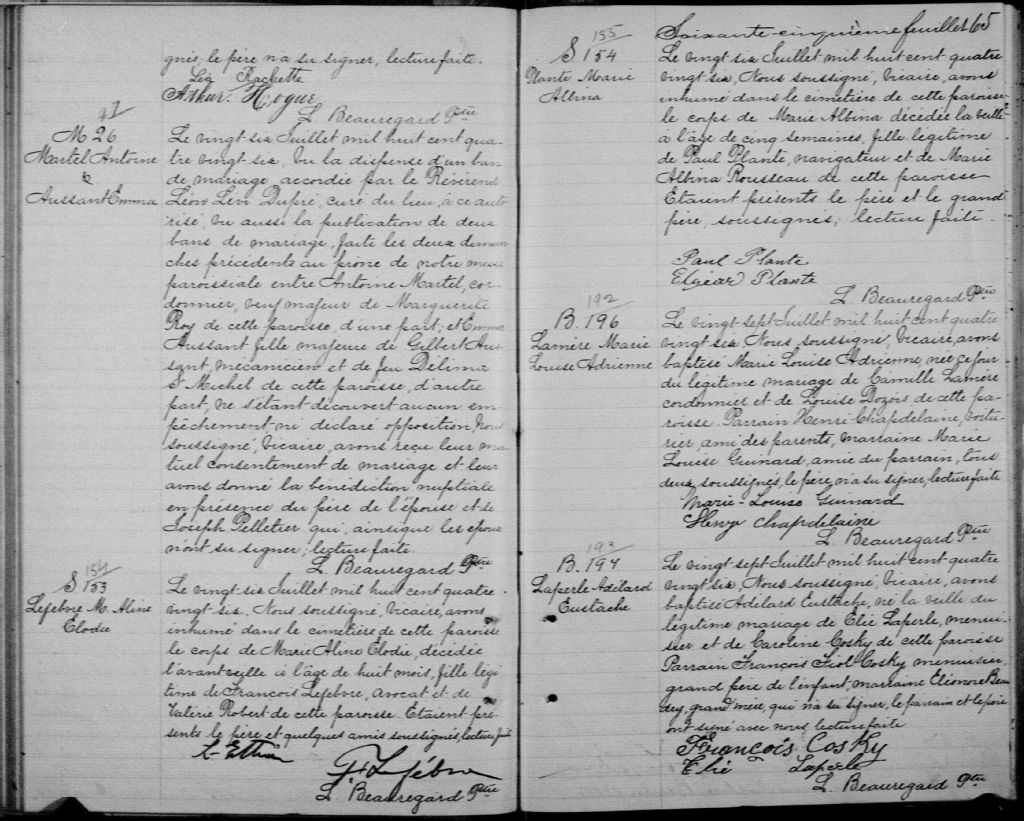 gnés; le père n'a su signer, lecture faite.
Léa Rachette
Arthur Hogue
L. Beauregard Ptre
97
M 26
Martel Antoine
&
Aussant Emma
Le vingt six Juillet mil huit cent qua-
tre vingt-six, Vu la dispense d'un ban
de mariage accordée par le Révérend
Léon Lévi Dupré, curé du lieu, à ce auto
risé, vu aussi la publication de deux
bans de mariage, faite les deux diman
ches précédents au prône de notre messe
paroissiale entre Antoine Martel, cor-
donnier, veuf majeur de Marguerite
Roy de cette paroisse, d'une part; et Emma
Aussant fille majeure de Gilbert Aus-
sant, mécanicien et de feu Délima
St Michel de cette paroisse, d'autre
part, ne s'étant découvert aucun em-
pêchement ni déclaré opposition, Nous
soussigné, Vicaire, avons reçu leur mu
tuel consentement de mariage et leur
avons donné la bénédiction nuptiale
en présence du père de l'épouse et de
Joseph Pelletier qui, ainsique les époux
n'ont su signer; lecture faite.
L. Beauregard Ptre
154
S 153
Lefebvre M. Aline
Elodie
Le vingt six Juillet mil huit cent quatre-
vingt-six, Nous soussigné, Vicaire, avons
inhumé dans le cimetière de cette paroisse
le corps de Marie Aline Elodie, décédée
l'avant veille à l'âge de huit mois, fille légi
time de François Lefebvre, avocat et de
Valérie Robert de cette paroisse. Etaient pré-
sents le père et quelques amis soussignés, lecture faite
F Lefebvre
L. Beauregard Ptre
Soixante-cinquième feuillet 65
155
S 154
Plante Marie
Albina
Le vingt six Juillet mil huit cent quatre
vingt six, Nous soussigné, Vicaire, avons
inhumé dans le cimetière de cette paroisse
le corps de Marie Albina décédée la veille
à l'âge de cinq semaines, fille légitime
de Paul Plante, navigateur et de Marie
Albina Rousseau de cette paroisse
Etaient présents le père et le grand
père, soussignés; lecture faite.
Paul Plante
Elzéar Plante
L. Beauregard Ptre
192
B. 196
Lamère Marie
Louise Adrienne
Le vingt-sept Juillet mil huit cent quatre
vingt six Nous soussigné, Vicaire, avons
baptisé Marie Louise Adrienne, née ce jour
du légitime mariage de Camille Lamère
cordonnier et de Louise Dozois de cette pa-
roisse. Parrain Henri Chapdelaine, voitu-
rier, ami des parents, marraine Marie
Louise Guinard, amie du parrain, tous
deux soussignés, le père, n'a su signer, lecture faite
Marie-Louise Guinard
Henry Chapdelaine
L. Beauregard Ptre
193
B. 197
Laperle Adélard
Eustache
Le vingt sept Juillet mil huit cent quatre
vingt-six, Nous soussigné, Vicaire, avons
baptisé Adélard Eustache, né la veille du
légitime mariage de Elie Laperle, menui-
sier et de Caroline Cosky de cette paroisse
Parrain François Cosky menuisier,
grand père de l'enfant, marraine Eléonore Beau
dey, grand'mère, qui n'a su signer, le parrain et le père
ont signé avec nous lecture faite
François Cosky
Elie Laperle
L. Beauregard Ptre